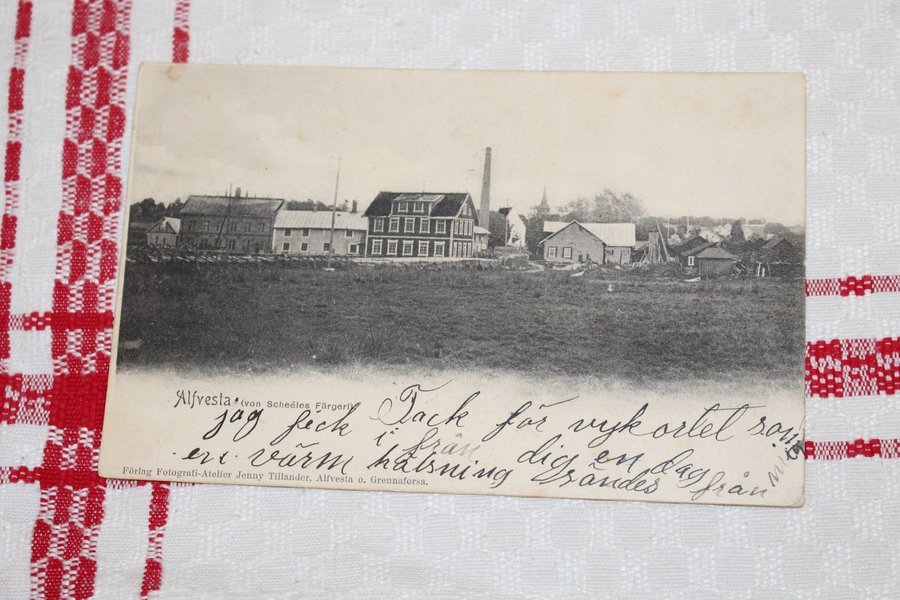 Alfvesta (von Scheéles Färgeri)
Tack för vykortet som
jag fick i från dig en dag
en varm hälsning från
Förlag Fotografi-Atelier Jenny Tillander, Alfvesta o. Grennaforsa.